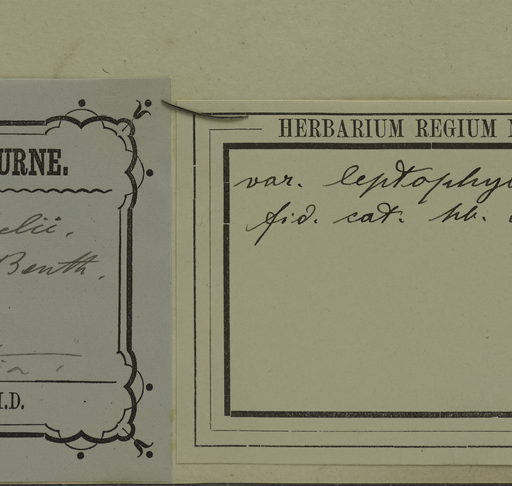 URNE.
elii.
Benth.
I.D.
HERBARIUM REGIUM
var. leptophyl
fid. cat. hb.